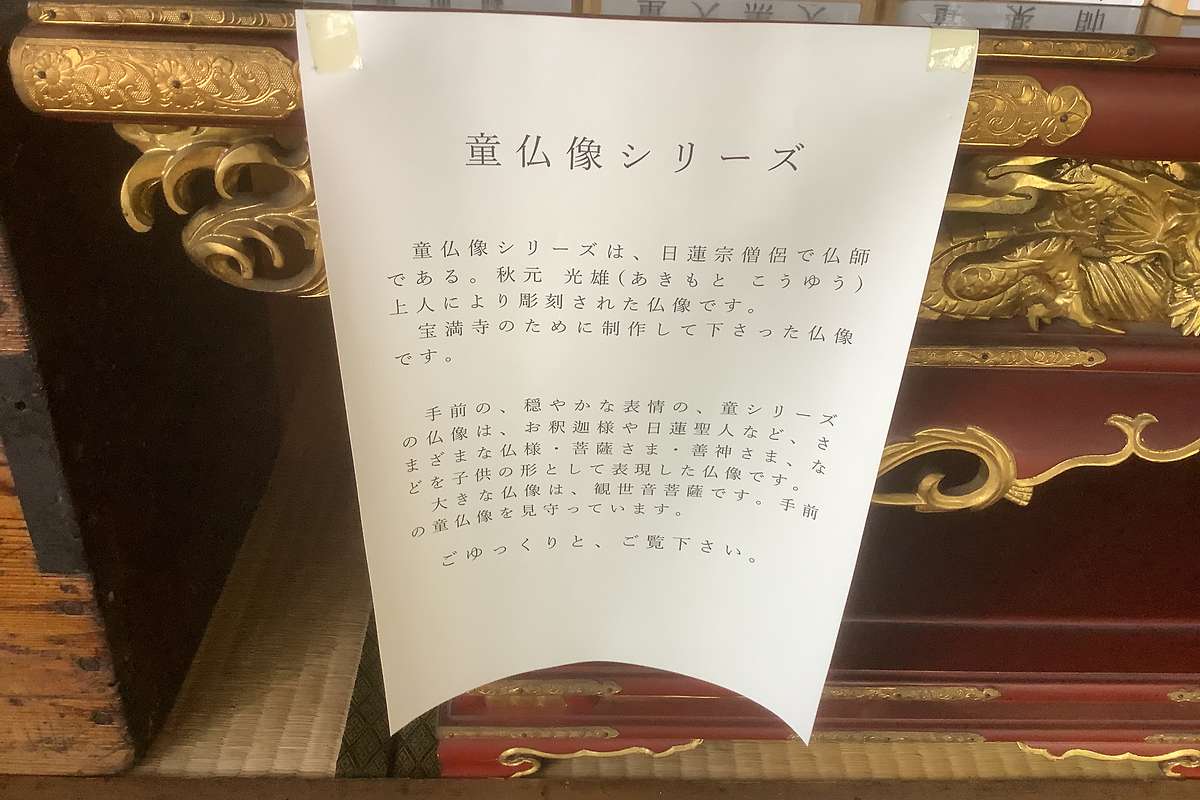 童仏像シリーズ
童仏像シリーズは、日蓮宗僧侶で仏師
である。秋元 光雄(あきもと こうゆう)
上人により彫刻された仏像です。
宝満寺のために制作して下さった仏像
です。
手前の、穏やかな表情の、童シリーズ
の仏像は、お釈迦様や日蓮聖人など、さ
まざまな仏様・菩薩さま・善神さま、な
どを子供の形として表現した仏像です。
大きな仏像は、観世音菩薩です。手前
の童仏像を見守っています。
ごゆっくりと、ご覧下さい。